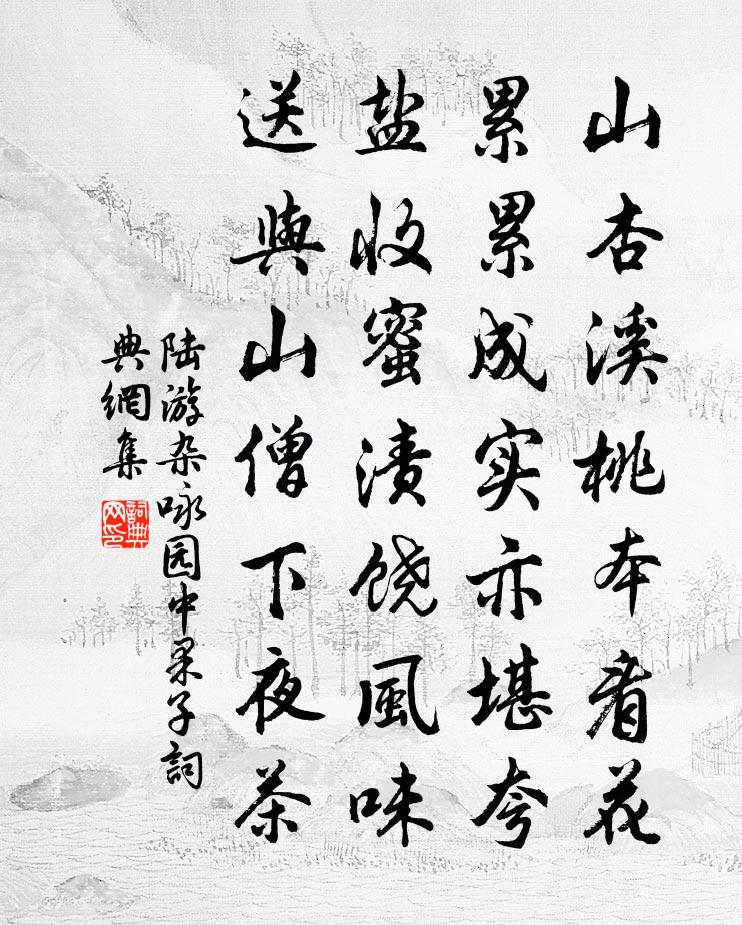 山杏溪桃本看花
累累成实亦堪夸
盐收蜜渍饶風味
送與山僧下夜茶
陆游杂咏园中果子詞
典網集
詞典網印